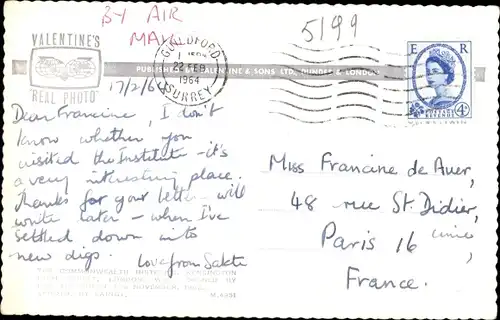 BY AIR
MAIL
5199
VALENTINE'S
"REAL PHOTO"
GUILDFORD
22 FEB
1964
SURREY
PUBLISHED BY VALENTINE & SONS LTD., DUNDEE & LONDON
E R
4D
POSTAGE REVENUE
17/2/64
Dear Francine, I don't
know whether you
visited the Institute - it's
a very interesting place.
Thanks for your letter - will
write later - when I've
settled down into
new digs. Love from
Miss Francine de Auer,
48 rue St. Didier,
Paris 16
France.
THE COMMONWEALTH INSTITUTE, KENSINGTON